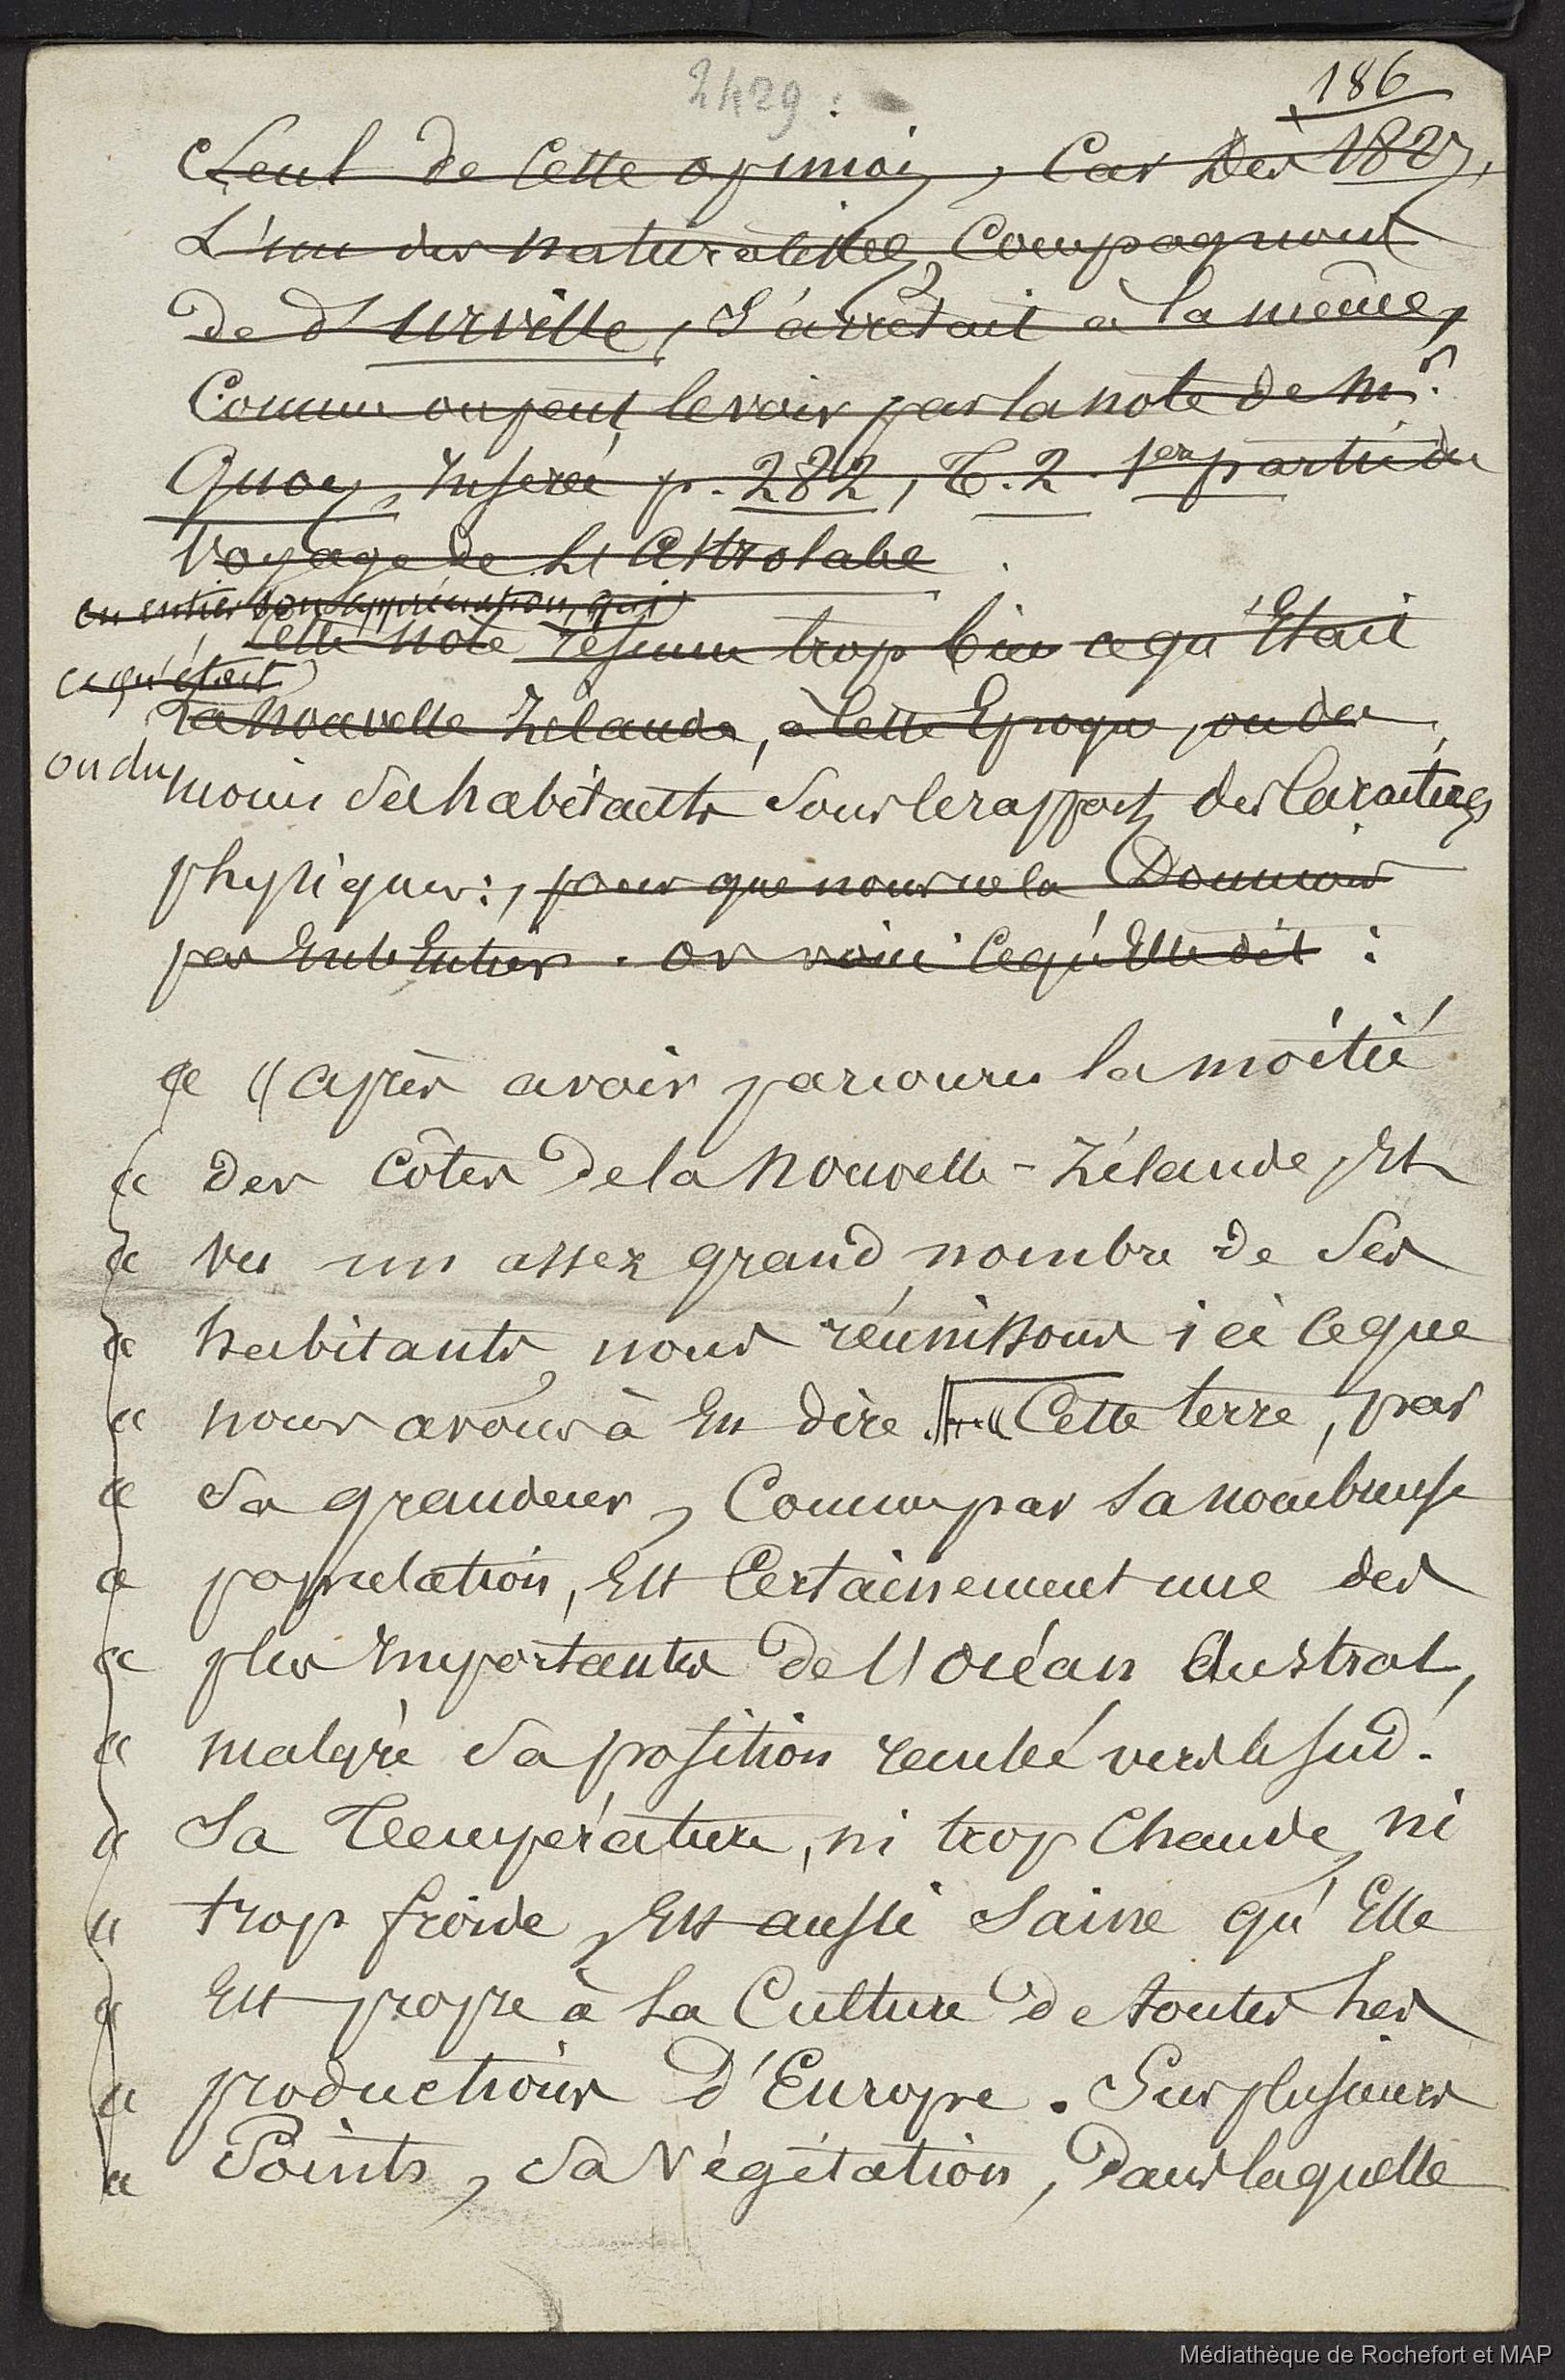 2429.
186
Seul de cette opinion, Car Dès 1827,
L'un des naturalistes, Compagnons
de d'urville, s'arrêtait à la même,
Comme on peut le voir par la note de Mr.
Quoy, Inserée p. 282, T. 2. 1ere partie du
Voyage de L'Astrolabe.
en entier son appréciation, qui
Cette note résume trop bien ce qu'Etait
ce qu'était
La Nouvelle Zélande, à cette Epoque, ou des
ou du moins Ses habitants Sous le rapport des Caractères
physiques:, pour que nous ne la Donnions
pas En Entier. or voici ce qu'Elle dit :
« après avoir parcouru la moitié
« Des Côtes De la Nouvelle-Zélande, Et
« Vu un assez grand nombre de Ses
« habitants, nous réunissons ici ce que
« nous avons à En dire. « Cette terre, par
« Sa grandeur, Comme par Sa nombreuse
« population, Est Certainement une des
« plus Importantes De l'océan Austral,
« malgré Sa position reculée vers le Sud.
« Sa Température, ni trop Chaude, ni
« trop froide, Est aussi Saine qu'Elle
« Est propre à La Culture De toutes Les
« productions D'Europe. Sur plusieurs
« Points, Sa Végétation, Dans laquelle
Médiathèque de Rochefort et MAP